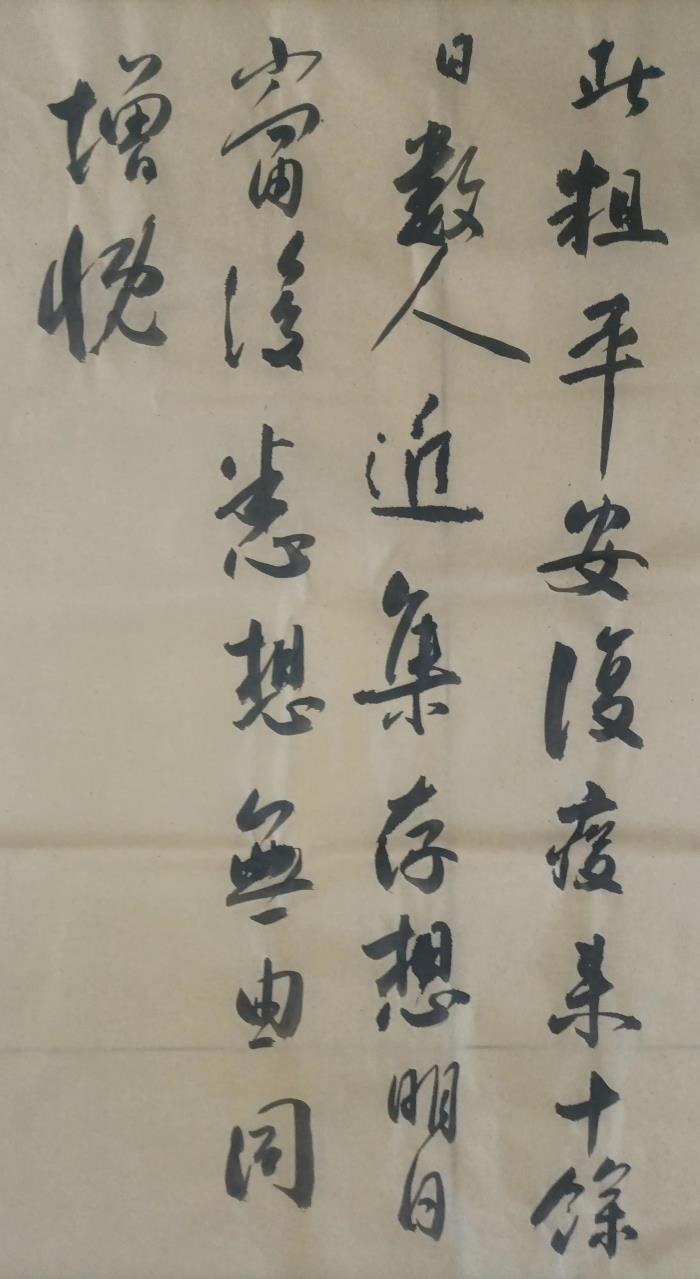 此粗平安復来十餘
日數人近集存想明日
當復悉想無由同
增慨